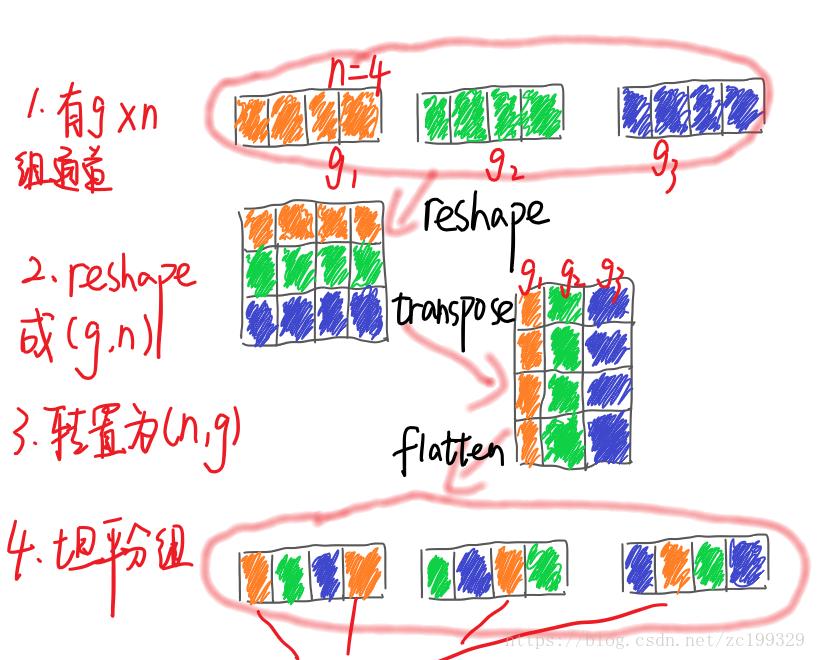 n=4
1. 有g×n
组通道
g1
g2
g3
reshape
2. reshape
成(g,n)
g1 g2 g3
transpose
3. 转置为(n,g)
flatten
4. 坦平分组
https://blog.csdn.net/zc199329